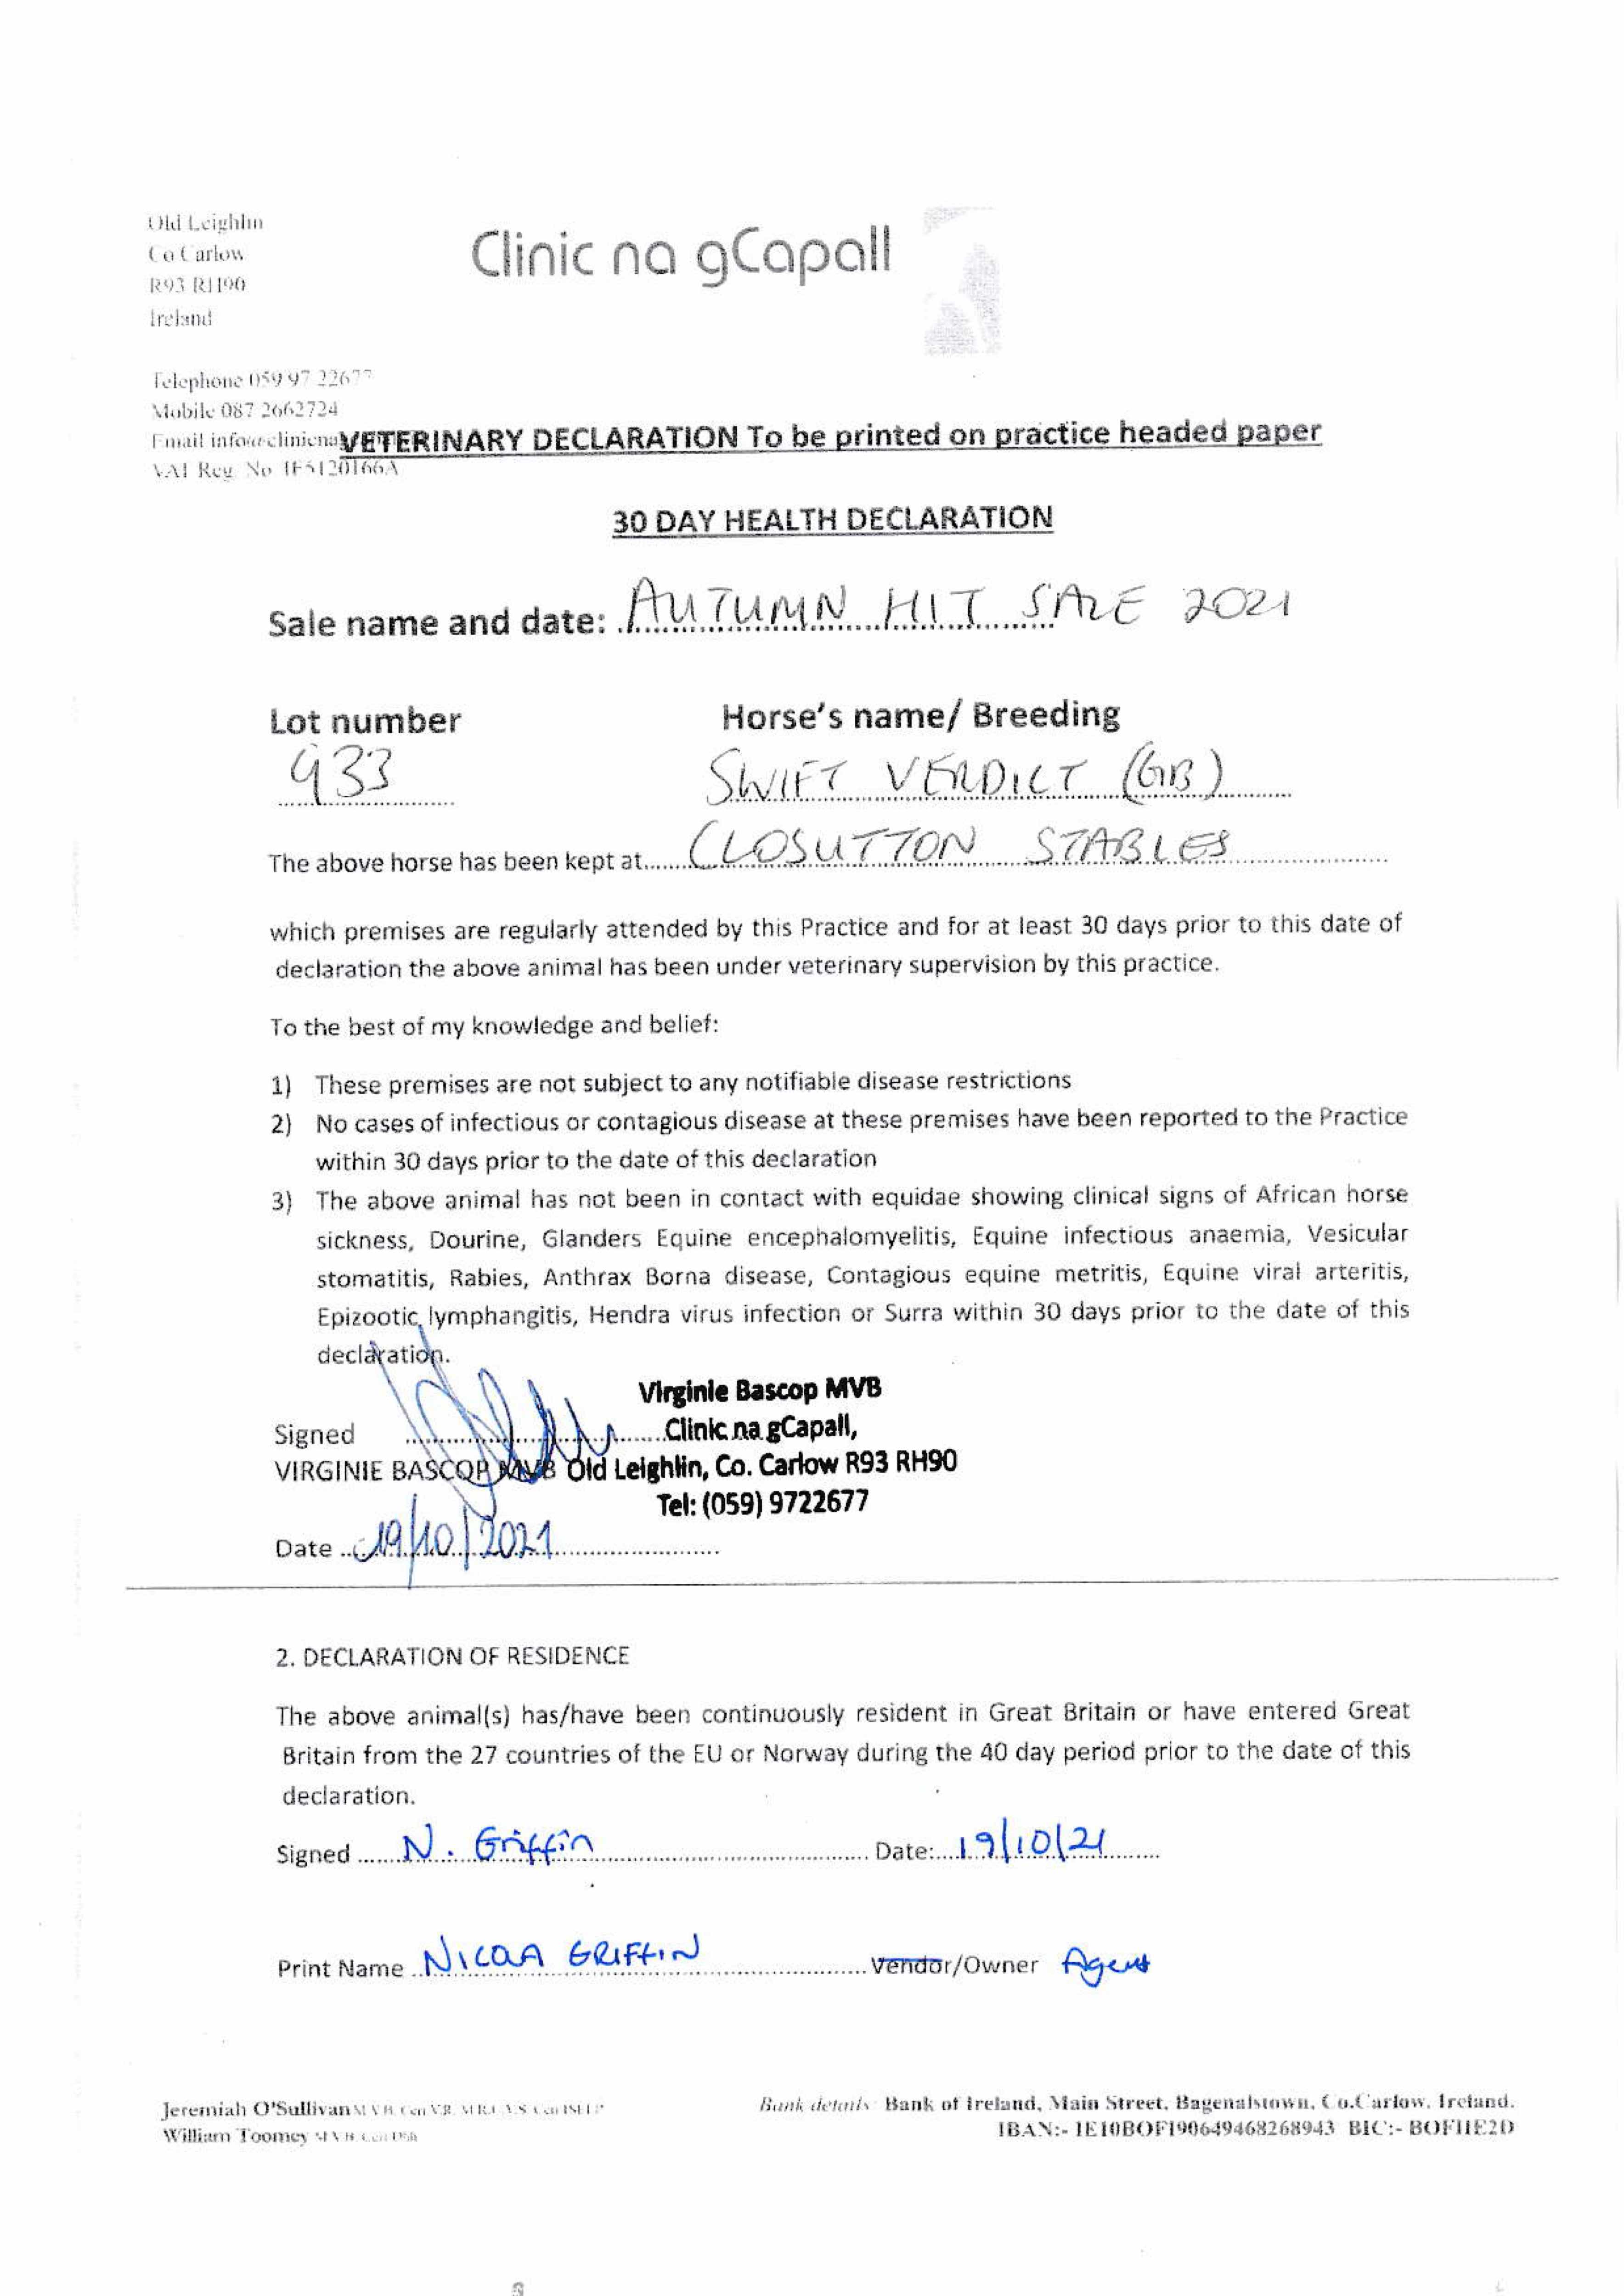 Old Leighlin
Co Carlow
R93 RH90
Ireland
Clinic na gCapall
Telephone 059 97 22677
Mobile 087 2662724
Email info@clinicna
VETERINARY DECLARATION To be printed on practice headed paper
VAT Reg. No IE5120166A
30 DAY HEALTH DECLARATION
Sale name and date: AUTUMN HIT SALE 2021
Lot number Horse's name/ Breeding
933 SWIFT VERDICT (GB)
The above horse has been kept at CLOSUTTON STABLES
which premises are regularly attended by this Practice and for at least 30 days prior to this date of
declaration the above animal has been under veterinary supervision by this practice.
To the best of my knowledge and belief:
1) These premises are not subject to any notifiable disease restrictions
2) No cases of infectious or contagious disease at these premises have been reported to the Practice
within 30 days prior to the date of this declaration
3) The above animal has not been in contact with equidae showing clinical signs of African horse
sickness, Dourine, Glanders Equine encephalomyelitis, Equine infectious anaemia, Vesicular
stomatitis, Rabies, Anthrax Borna disease, Contagious equine metritis, Equine viral arteritis,
Epizootic lymphangitis, Hendra virus infection or Surra within 30 days prior to the date of this
declaration.
Virginie Bascop MVB
Signed Clinic na gCapall,
VIRGINIE BASCOP MVB Old Leighlin, Co. Carlow R93 RH90
Tel: (059) 9722677
Date 19/10/2021
2. DECLARATION OF RESIDENCE
The above animal(s) has/have been continuously resident in Great Britain or have entered Great
Britain from the 27 countries of the EU or Norway during the 40 day period prior to the date of this
declaration.
Signed N. Griffin Date: 19/10/21
Print Name NICOLA GRIFFIN Vendor/Owner Agent
Jeremiah O'Sullivan Bank details Bank of Ireland, Main Street, Bagenalstown, Co.Carlow, Ireland.
William Toomey IBAN:- IE10BOFI90649468268943 BIC:- BOFIIE2D